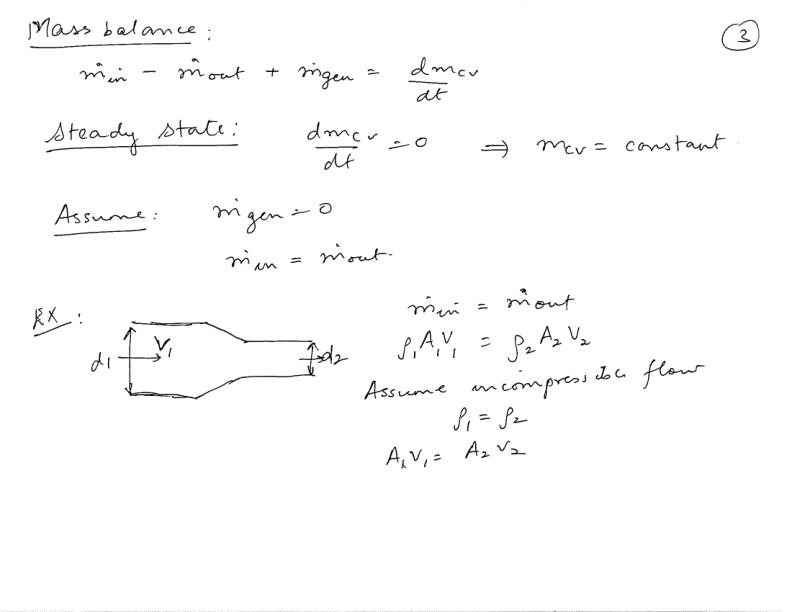 Mass balance:
3
ṁin - ṁout + ṁgen = dmcv/dt
Steady state: dmcv/dt = 0 ⇒ mcv = constant
Assume: ṁgen = 0
ṁin = ṁout.
EX:
ṁin = ṁout
d1 V1 d2
ρ1A1V1 = ρ2A2V2
Assume incompressible flow
ρ1 = ρ2
A1V1 = A2V2